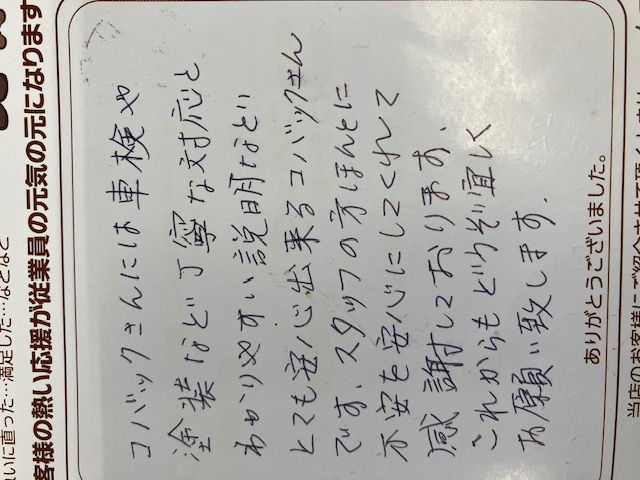 れいに直った…満足した…などなど
客様の熱い応援が従業員の元気の元になります
コバックさんには車検や
塗装など丁寧な対応と
わかりやすい説明などい
とても安心出来るコバックさん
です。スタッフの方ほんとに
不安を安心にしてくれて
感謝しております。
これからもどうぞ宜しく
お願い致します。
ありがとうございました。